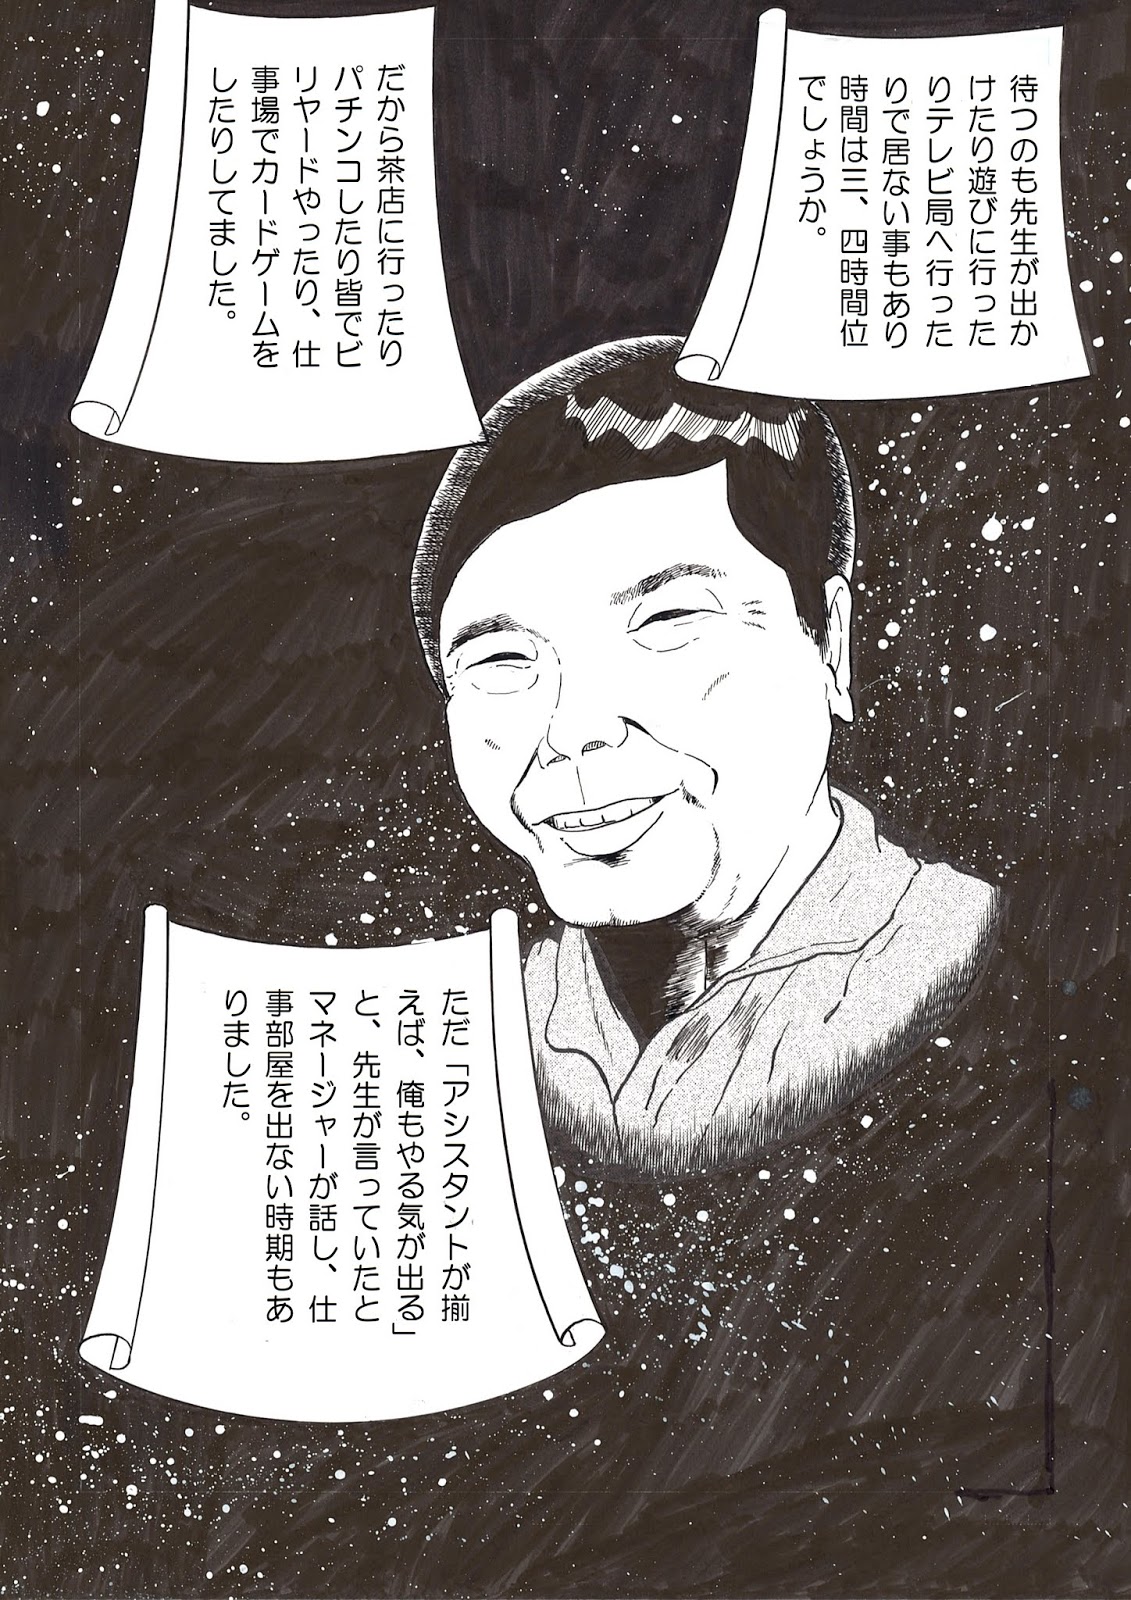 待つのも先生が出か
けたり遊びに行った
りテレビ局へ行った
りで居ない事もあり
時間は三、四時間位
でしょうか。
だから茶店に行ったり
パチンコしたり皆でビ
リヤードやったり、仕
事場でカードゲームを
したりしてました。
ただ「アシスタントが揃
えば、俺もやる気が出る」
と、先生が言っていたと
マネージャーが話し、仕
事部屋を出ない時期もあ
りました。